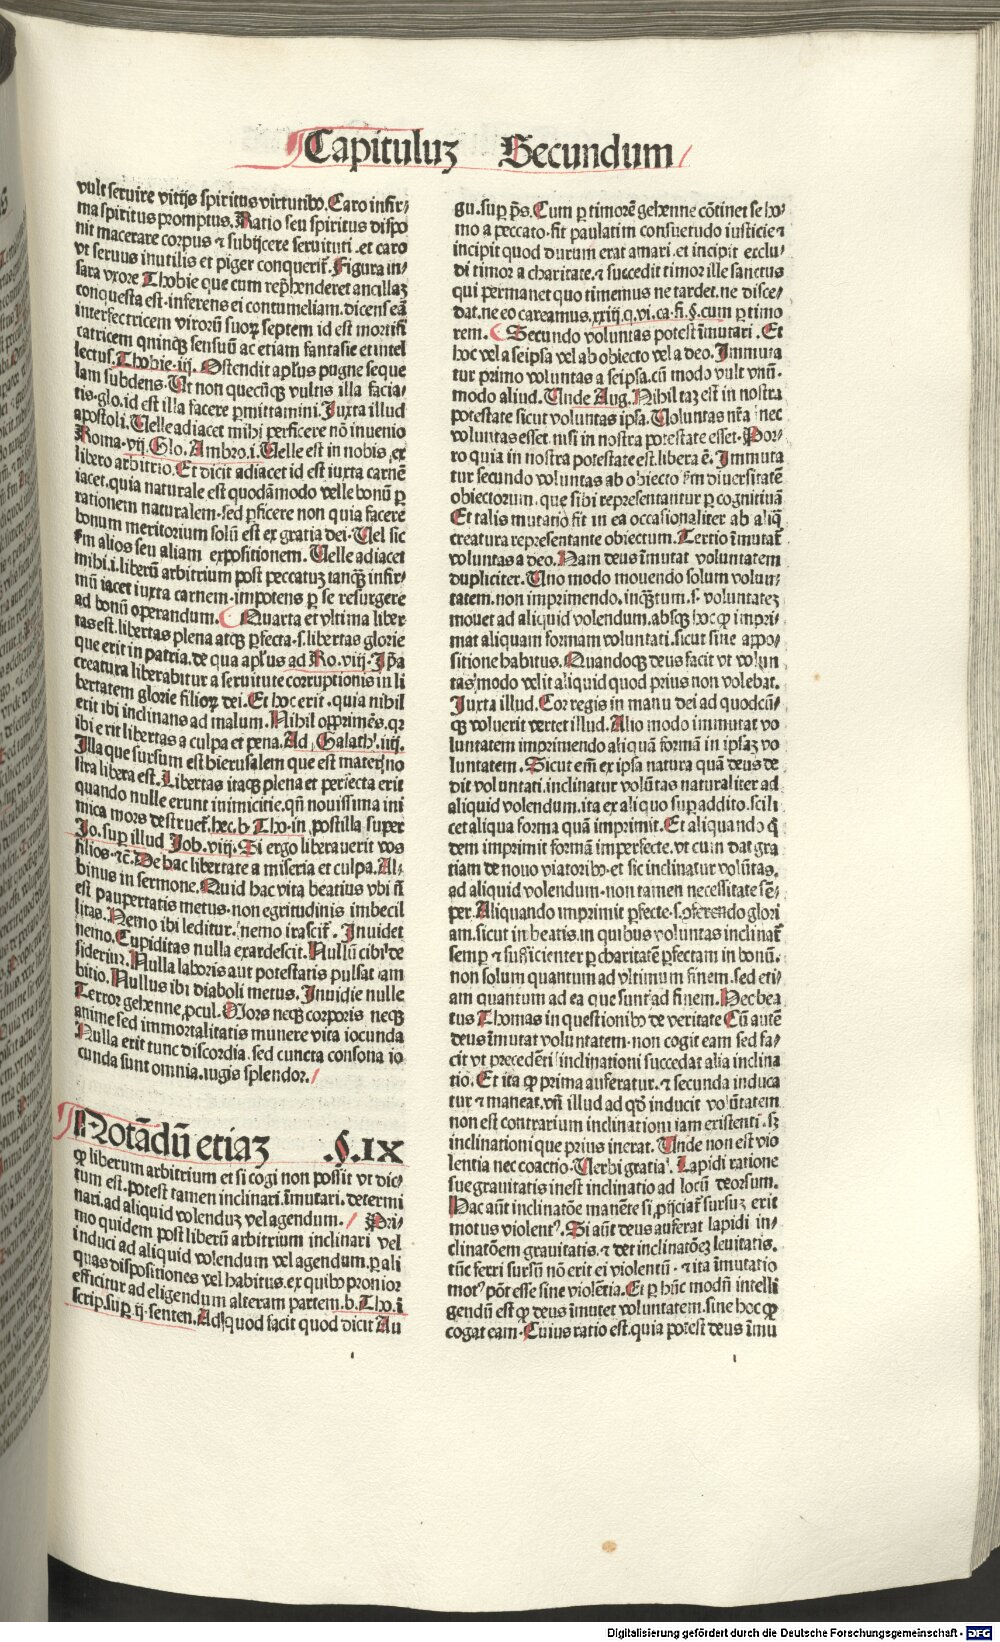 Capituluʒ Secundum
vult seruire vitijs spiritus virtutibꝰ. Caro infir⸗
ma spiritus promptus. Ratio seu spiritus dispo
nit macerare corpus ⁊ subijcere seruituti. et caro
vt seruus inutilis et piger conquerit᷑. Figura in⸗
sara vxore Thobie que cum rep̄henderet ancillaʒ
conquesta est. inferens ei contumeliam. dicens eā
interfectricem viroꝝ suoꝝ septem id est mortifi
catricem quinqꝫ sensuū ac etiam fantasie et intel
lectus. Thobie. iij. Ostendit apl̓us pugne seque
lam subdens. Ut non quecūqꝫ vultis illa facia⸗
tis. glo. id est illa facere ꝑmittamini. Juxta illud
apostoli. Uelle adiacet mihi perficere nō inuenio
Roma. vij. Glo. Ambro. i. Uelle est in nobis ex
libero arbitrio. Et dicit adiacet id est iuxta carnē
iacet. quia naturale est quodāmodo velle bonū ꝑ
rationem naturalem. sed ꝑficere non quia facere
bonum meritorium solū est ex gratia dei. Uel sic
ẜm alios seu aliam expositionem. Uelle adiacet
mihi. i. liberū arbitrium post peccatuʒ tanqꝫ infir⸗
mū iacet iuxta carnem. impotens ꝑ se resurgere
ad bonū operandum. Quarta et vltima liber⸗
tas est. libertas plena atqꝫ ꝑfecta. s. libertas glorie
que erit in patria. de qua apl̓us ad Ro. viij. Ip̄a
creatura liberabitur a seruitute corruptionis in li
bertatem glorie filioꝝ dei. Et hoc erit. quia nihil
erit ibi inclinans ad malum. Nihil opprimēs. qꝛ
ibi erit libertas a culpa et pena. Ad Galath̓. iiij.
Illa que sursum est hierusalem que est mater no
stra libera est. Libertas itaqꝫ plena et perfecta erit
quando nulle erunt inimicitie. qn̄ nouissima ini
mica mors destruet᷑. hec. b. Tho. in postilla super
Jo. suꝑ illud Job. viij. Si ergo liberauerit vos
filios. ⁊c̄. De hac libertate a miseria et culpa. Al⸗
binus in sermone. Quid hac vita beatius vbi n̄
est paupertatis metus. non egritudinis imbecil
litas. Nemo ibi leditur. nemo irascit᷑. Inuidet
nemo. Cupiditas nulla exardescit. Nullū cibi de
siderium. Nulla laboris aut potestatis pulsat am
bitio. Nullus ibi diaboli metus. Inuidie nulle
Terror gehenne ꝓcul. Mors neqꝫ corporis neqꝫ
anime sed immortalitatis munere vita iocunda
Nulla erit tunc discordia. sed cuncta consona io
cunda sunt omnia. iugis splendor.
Notādū etiaʒ .§. IX
qꝙ liberum arbitrium et si cogi non possit vt dic⸗
tum est. potest tamen inclinari. īmutari. determi
nari. ad aliquid volenduʒ vel agendum. Pri⸗
mo quidem post liberū arbitrium inclinari vel
induci ad aliquid volendum vel agendum. ꝑ ali
quas dispositiones vel habitus. ex quibꝰ pronior
efficitur ad eligendum alteram partem. b. Tho. ī
scrip. suꝑ ij. senten. Ad quod facit quod dicit Au
gu. suꝑ p̄s. Cum ꝑ timorē gehenne cōtinet se ho⸗
mo a peccato. fit paulatim consuetudo iusticie ⁊
incipit quod durum erat amari. et incipit exclu⸗
di timor a charitate. ⁊ succedit timor ille sanctus
qui permanet quo timemus ne tardet. ne disce⸗
dat. ne eo careamus. xxiij. q. vi. ca. fi. §. cum ꝑ timo
rem. Secundo voluntas potest īmutari. Et
hoc vel a seipsa vel ab obiecto vel a deo. Immuta
tur primo voluntas a seipsa. cū modo vult vnū.
modo aliud. Unde Aug. Nihil taʒ est in nostra
potestate sicut voluntas ipsa. Uoluntas nr̄a nec
voluntas esset. nisi in nostra potestate esset. Por⸗
ro quia in nostra potestate est. libera ē. Immuta
tur secundo voluntas ab obiecto ẜm diuersitatē
obiectorum. que sibi representantur ꝑ cognitiuā
Et talis mutatio fit in ea occasionaliter ab aliq̄
creatura representante obiectum. Tertio īmutat᷑
voluntas a deo. Nam deus īmutat voluntatem
dupliciter. Uno modo mouendo solum volun⸗
tatem. non imprimendo. inqꝫtum. s. voluntateʒ
mouet ad aliquid volendum. absqꝫ hoc ꝙ impri⸗
mat aliquam formam voluntati. sicut sine appo⸗
sitione habitus. Quandoqꝫ deus facit vt volun
tas modo velit aliquid quod prius non volebat.
Juxta illud. Cor regis in manu dei ad quodcū⸗
qꝫ voluerit vertet illud. Alio modo immutat vo
luntatem imprimendo aliquā formā in ipsaʒ vo
luntatem. Sicut em̄ ex ipsa natura quā deus de
dit voluntati. inclinatur volūtas naturaliter ad
aliquid volendum. ita ex aliquo suꝑaddito. scili
cet aliqua forma quā imprimit. Et aliquando q̄
dem imprimit formā imperfecte. vt cum dat gra
tiam de nouo viatoribꝰ. et sic inclinatur volūtas.
ad aliquid volendum. non tamen necessitate sē⸗
per. Aliquando imprimit ꝑfecte. s. ꝯferendo glori
am. sicut in beatis. in quibus voluntas inclinat᷑
semꝑ ⁊ sufficienter ꝑ charitatē ꝑfectam in bonū.
non solum quantum ad vltimum finem. sed eti⸗
am quantum ad ea que sunt ad finem. Nec bea
tus Thomas in questionibꝰ de veritate Cū autē
deus īmutat voluntatem. non cogit eam sed fa⸗
cit vt precedēti inclinationi succedat alia inclina
tio. Et ita ꝙ prima auferatur. ⁊ secunda induca
tur ⁊ maneat. vn̄ illud ad qd̓ inducit volūtatem
non est contrarium inclinationi iam existenti. sʒ
inclinationi que prius inerat. Unde non est vio
lentia nec coactio. Uerbi gratia. Lapidi ratione
sue grauitatis inest inclinatio ad locū deorsum.
Hac aūt inclinatōe manēte si ꝓijciat᷑ sursuʒ erit
motus violentꝰ. Si aūt deus auferat lapidi in⸗
clinatōem grauitatis. ⁊ det inclinatōeʒ leuitatis.
tūc ferri sursū nō erit ei violentū. ⁊ ita īmutatio
motꝰ pōt esse sine violētia. Et ꝑ hūc modū intelli
gendū est ꝙ deus īmutet voluntatem. sine hoc ꝙ
cogat eam. Cuius ratio est. quia potest deus īmu
Digitalisierung gefördert durch die Deutsche Forschungsgemeinschaft - DFG